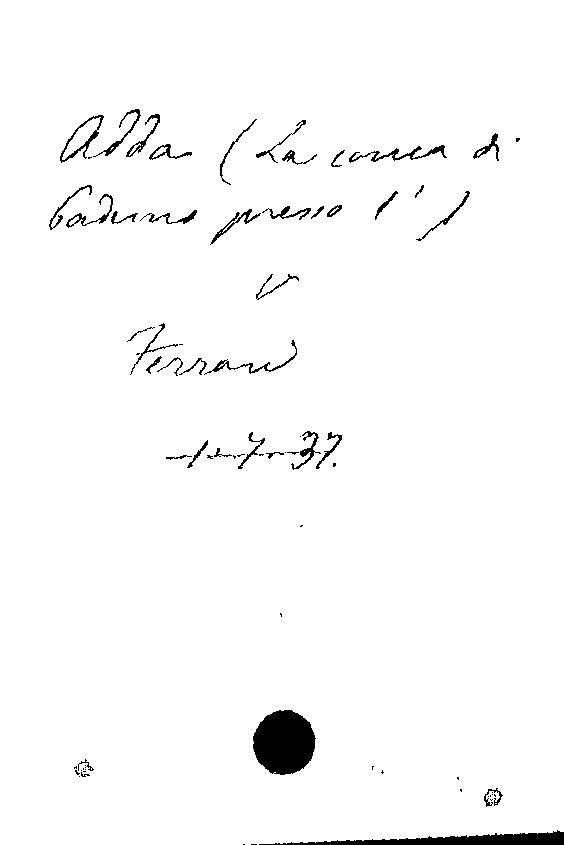 Adda (La conca di
Paderno presso l')
v
Ferrari
1-7-37.